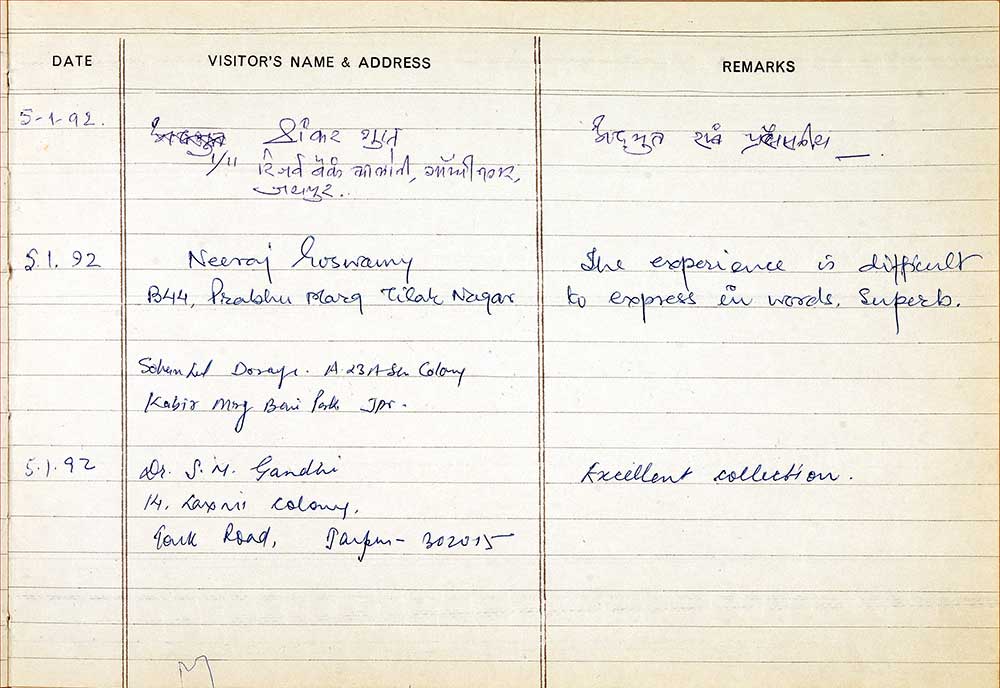 DATE VISITOR'S NAME & ADDRESS REMARKS
5-1-92. शंकर गुप्त अद्भुत एवं प्रशंसनीय
1/11 रिजर्व बैंक कालोनी, गाँधीनगर,
जयपुर.
5.1.92 Neeraj Goswamy The experience is difficult
B44, Prabhu Marg Tilak Nagar to express in words. Superb.
A 23A Sen Colony
Kabir Mrg Bani Park JPr.
5.1.92 Dr. S.M. Gandhi Excellent collection.
14. Laxmi Colony,
Tonk Road, Jaipur- 302015